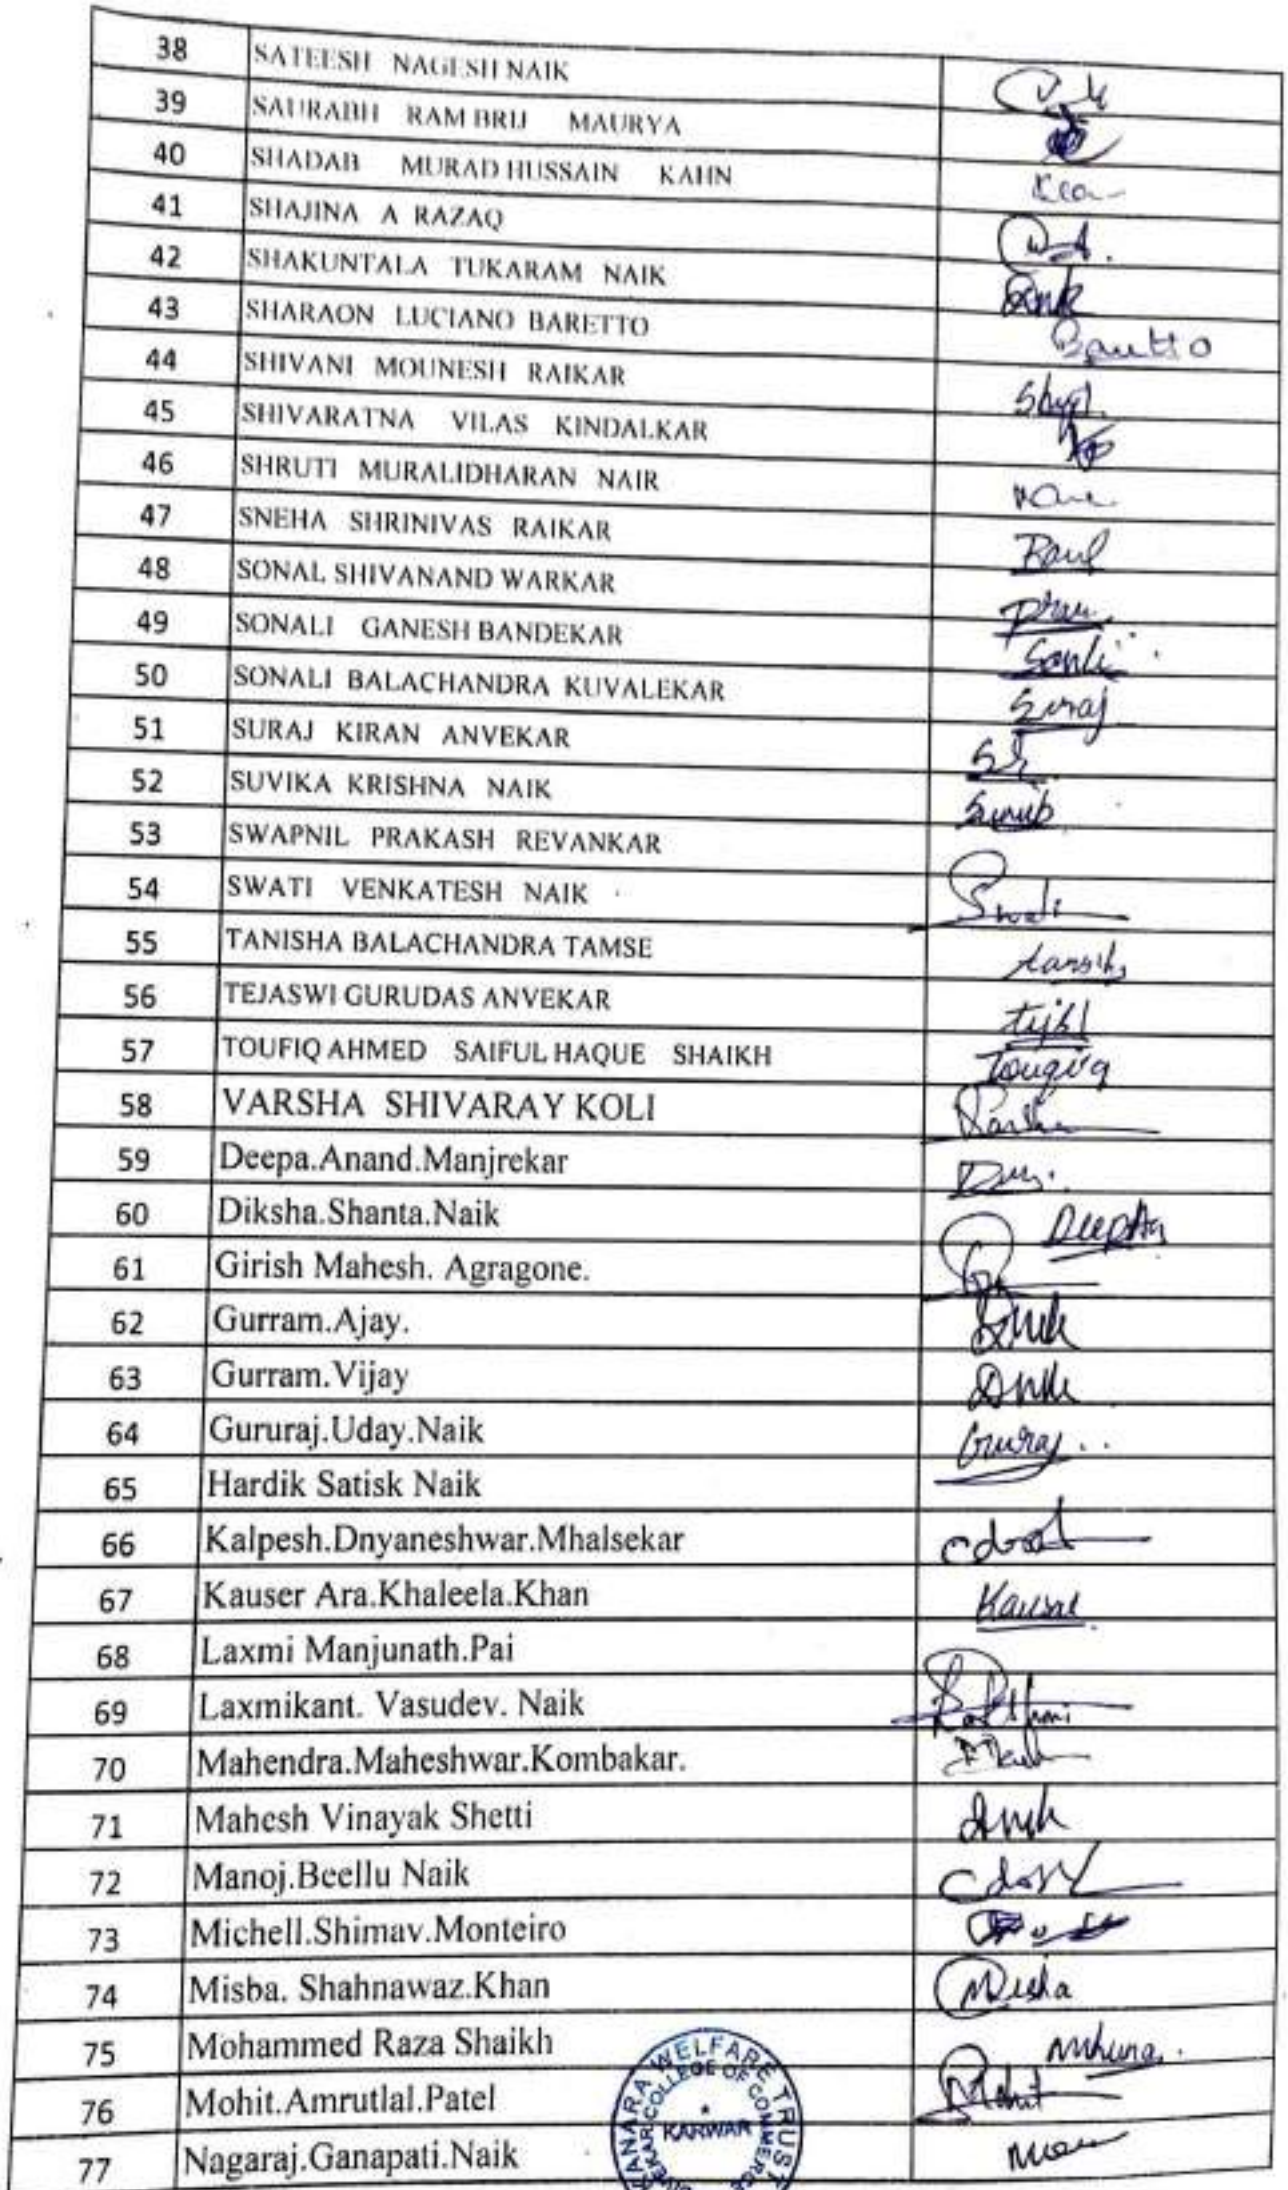 38 SATEESH NAGESH NAIK
39 SAURABH RAM BRIJ MAURYA
40 SHADAB MURAD HUSSAIN KAHN
41 SHAJINA A RAZAQ
42 SHAKUNTALA TUKARAM NAIK
43 SHARAON LUCIANO BARETTO
44 SHIVANI MOUNESH RAIKAR
45 SHIVARATNA VILAS KINDALKAR
46 SHRUTI MURALIDHARAN NAIR
47 SNEHA SHRINIVAS RAIKAR
48 SONAL SHIVANAND WARKAR
49 SONALI GANESH BANDEKAR
50 SONALI BALACHANDRA KUVALEKAR Suraj
51 SURAJ KIRAN ANVEKAR
52 SUVIKA KRISHNA NAIK
53 SWAPNIL PRAKASH REVANKAR
54 SWATI VENKATESH NAIK Swati
55 TANISHA BALACHANDRA TAMSE
56 TEJASWI GURUDAS ANVEKAR
57 TOUFIQ AHMED SAIFUL HAQUE SHAIKH
58 VARSHA SHIVARAY KOLI
59 Deepa.Anand.Manjrekar
60 Diksha.Shanta.Naik
61 Girish Mahesh. Agragone.
62 Gurram.Ajay.
63 Gurram.Vijay
64 Gururaj.Uday.Naik
65 Hardik Satisk Naik
66 Kalpesh.Dnyaneshwar.Mhalsekar
67 Kauser Ara.Khaleela.Khan
68 Laxmi Manjunath.Pai
69 Laxmikant. Vasudev. Naik
70 Mahendra.Maheshwar.Kombakar.
71 Mahesh Vinayak Shetti
72 Manoj.Beellu Naik
73 Michell.Shimav.Monteiro
74 Misba. Shahnawaz.Khan
75 Mohammed Raza Shaikh
76 Mohit.Amrutlal.Patel Mohit
77 Nagaraj.Ganapati.Naik
WELFARE TRUST
COLLEGE OF COMMERCE
KARWAR